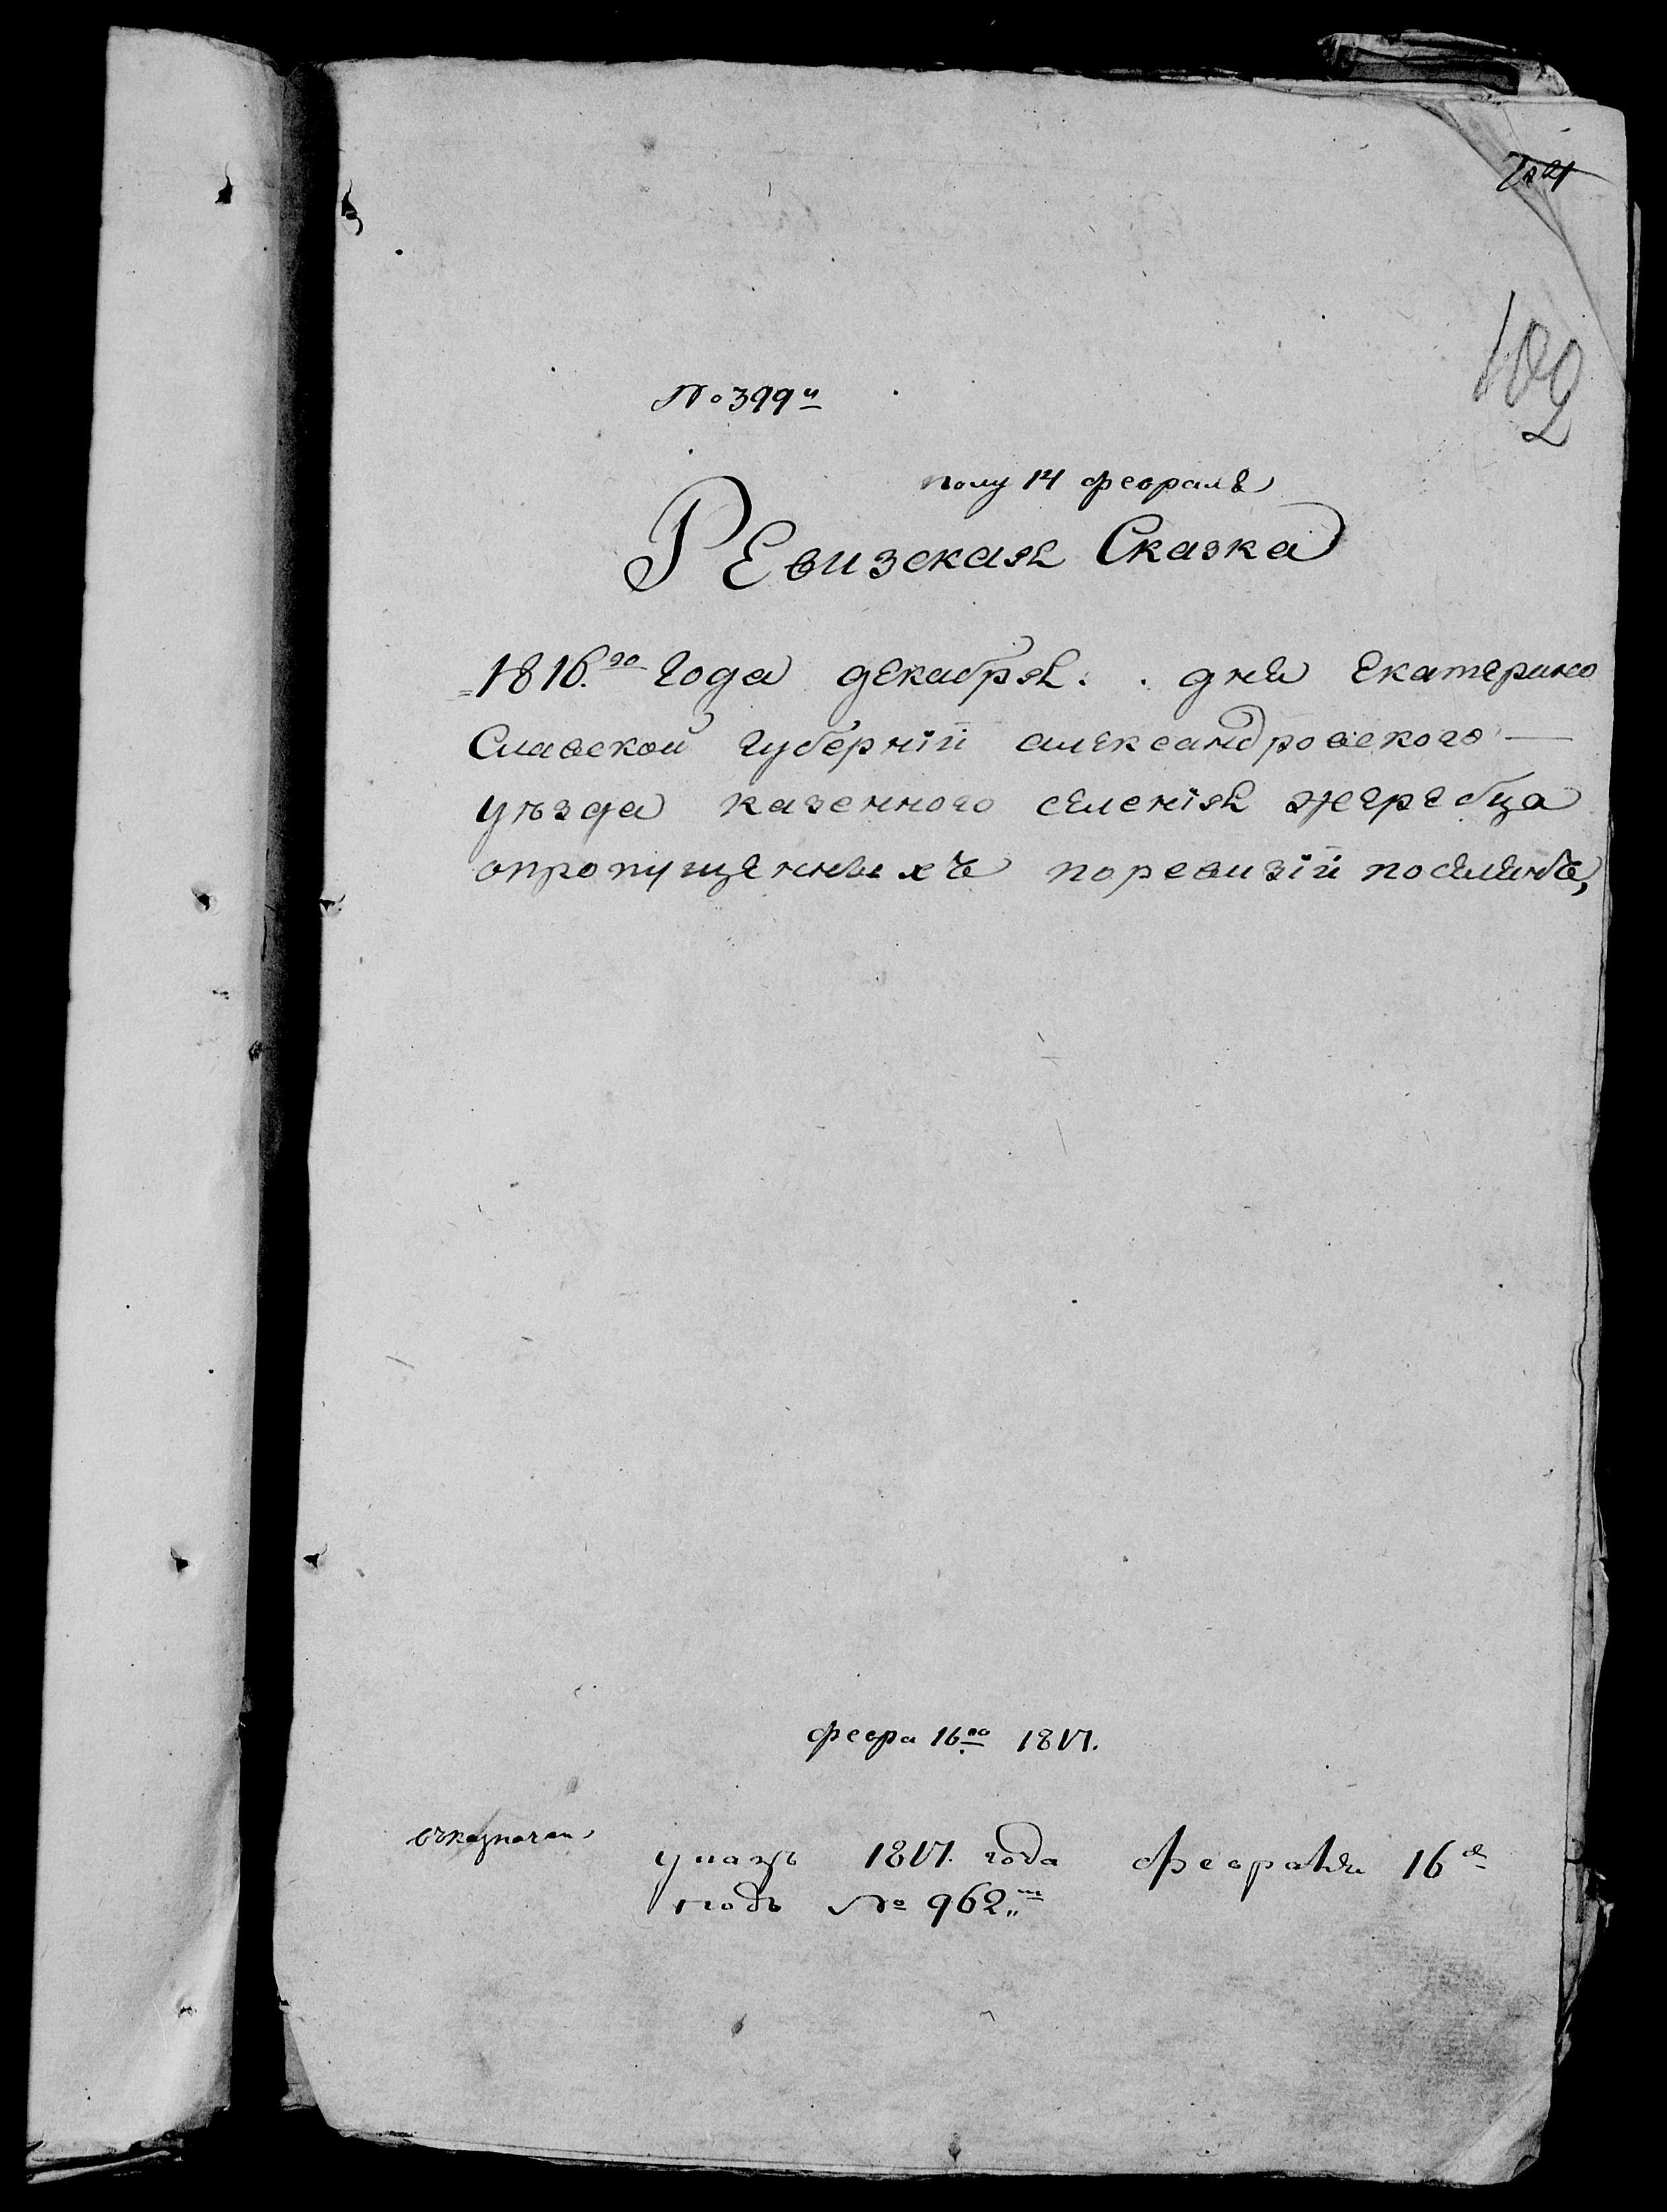 102
№ 399й
полу 14 февраля
РЕвизская Сказка
1816.го года декабря . . дня Екатерино
Славской губерніи александровского —
уѣзда казенного селенія жеребца
опропущенныхъ поревизіи
февра 16го 1817.
указъ 1817. года февраля 16
подъ № 962